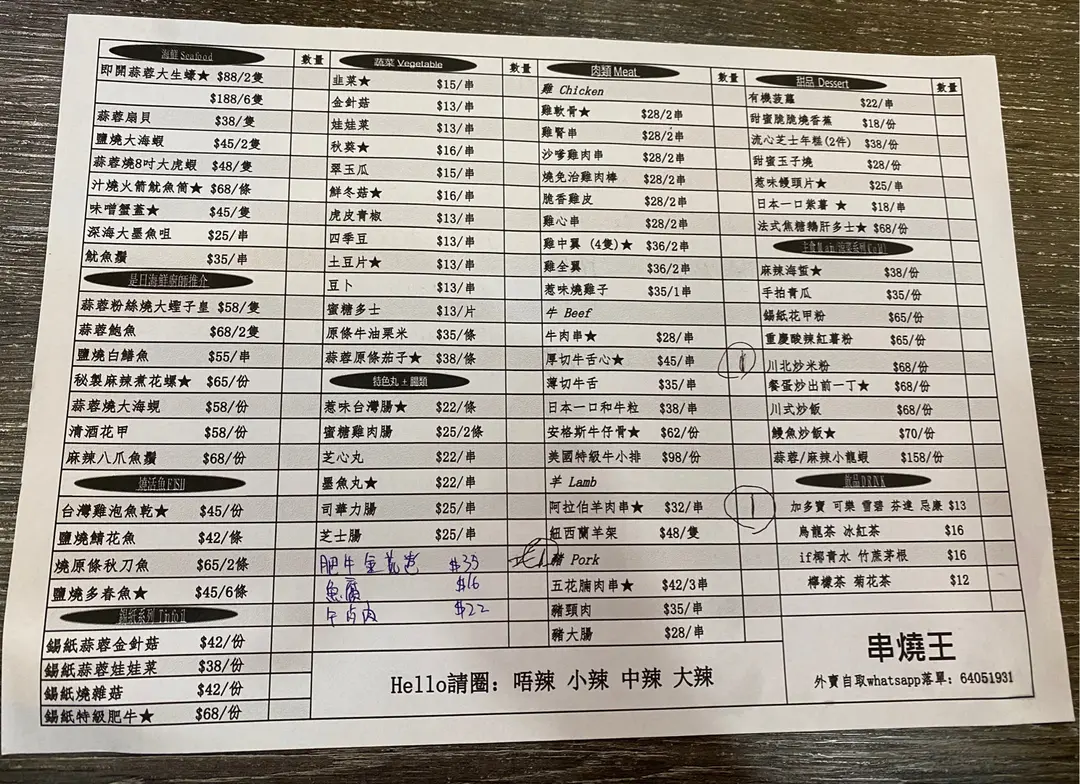 海鮮 Seafood 數量
即開蒜蓉大生蠔★ $88/2隻
$188/6隻
蒜蓉扇貝 $38/隻
鹽燒大海蝦 $45/2隻
蒜蓉燒8吋大虎蝦 $48/隻
汁燒火箭魷魚筒★ $68/條
味噌蟹蓋★ $45/隻
深海大墨魚咀 $25/串
魷魚鬚 $35/串
是日海鮮廚師推介
蒜蓉粉絲燒大蟶子皇 $58/隻
蒜蓉鮑魚 $68/2隻
鹽燒白鱔魚 $55/串
秘製麻辣煮花螺★ $65/份
蒜蓉燒大海蜆 $58/份
清酒花甲 $58/份
麻辣八爪魚鬚 $68/份
燒活魚FISH
台灣雞泡魚乾★ $45/份
鹽燒鯖花魚 $42/條
燒原條秋刀魚 $65/2條
鹽燒多春魚★ $45/6條
錫紙系列 Tinfoil
錫紙蒜蓉金針菇 $42/份
錫紙蒜蓉娃娃菜 $38/份
錫紙燒雜菇 $42/份
錫紙特級肥牛★ $68/份
蔬菜 Vegetable 數量
韭菜★ $15/串
金針菇 $13/串
娃娃菜 $13/串
秋葵★ $16/串
翠玉瓜 $15/串
鮮冬菇★ $16/串
虎皮青椒 $13/串
四季豆 $13/串
土豆片★ $13/串
豆卜 $13/串
蜜糖多士 $13/片
原條牛油粟米 $35/條
蒜蓉原條茄子★ $38/條
特色丸+腸類
惹味台灣腸★ $22/條
蜜糖雞肉腸 $25/2條
芝心丸 $22/串
墨魚丸★ $22/串
司華力腸 $25/串
芝士腸 $25/串
肥牛金菇卷 $35
魚腐 $16
午肉 $22
肉類 Meat 數量
雞 Chicken
雞軟骨★ $28/2串
雞腎串 $28/2串
沙嗲雞肉串 $28/2串
燒免治雞肉棒 $28/2串
脆香雞皮 $28/2串
雞心串 $28/2串
雞中翼 (4隻)★ $36/2串
雞全翼 $36/2串
惹味燒雞子 $35/1串
牛 Beef
牛肉串★ $28/串
厚切牛舌心★ $45/串 1
薄切牛舌 $35/串
日本一口和牛粒 $38/串
安格斯牛仔骨★ $62/份
美國特級牛小排 $98/份
羊 Lamb
阿拉伯羊肉串★ $32/串 1
紐西蘭羊架 $48/隻
豬 Pork
五花腩肉串★ $42/3串
豬頸肉 $35/串
豬大腸 $28/串
甜品 Dessert 數量
有機菠蘿 $22/串
甜蜜脆脆燒香蕉 $18/份
流心芝士年糕(2件) $38/份
甜蜜玉子燒 $28/份
惹味饅頭片★ $25/串
日本一口紫薯 ★ $18/串
法式焦糖鵝肝多士★ $68/份
麻辣海蜇★ $38/份
手拍青瓜 $35/份
錫紙花甲粉 $65/份
重慶酸辣紅薯粉 $65/份
川北炒米粉 $68/份
餐蛋炒出前一丁★ $68/份
川式炒飯 $68/份
鰻魚炒飯★ $70/份
蒜蓉/麻辣小龍蝦 $158/份
飲品DRINK
加多寶 可樂 雪碧 芬達 忌廉 $13
烏龍茶 冰紅茶 $16
if椰青水 竹蔗茅根 $16
檸檬茶 菊花茶 $12
Hello請圈: 唔辣 小辣 中辣 大辣
串燒王
外賣自取whatsapp落單: 64051931